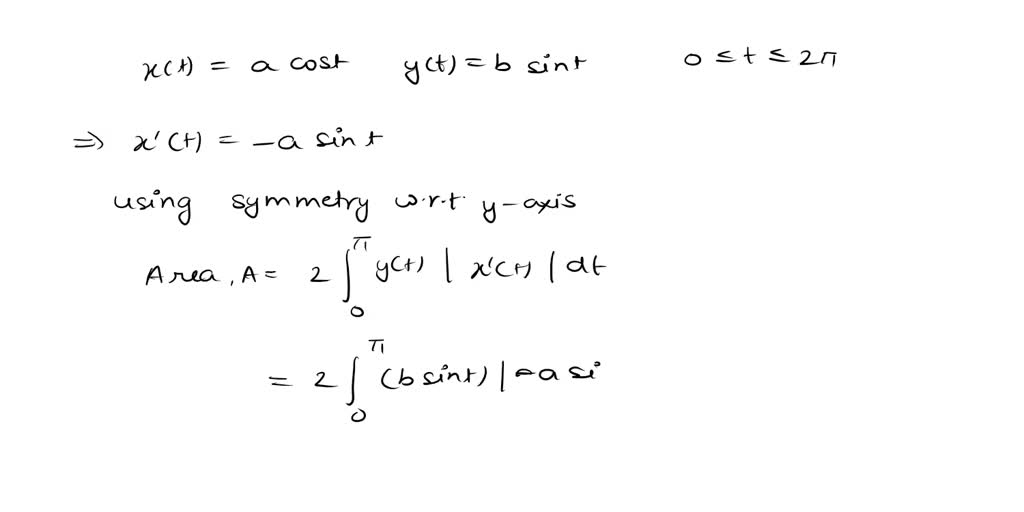 x(t) = a cost y(t) = b sint 0 ≤ t ≤ 2π
⇒ x'(t) = -a sint
using symmetry w.r.t. y-axis
Area, A = 2 ∫₀^π y(t) | x'(t) | dt
= 2 ∫₀^π (b sint) | -a si